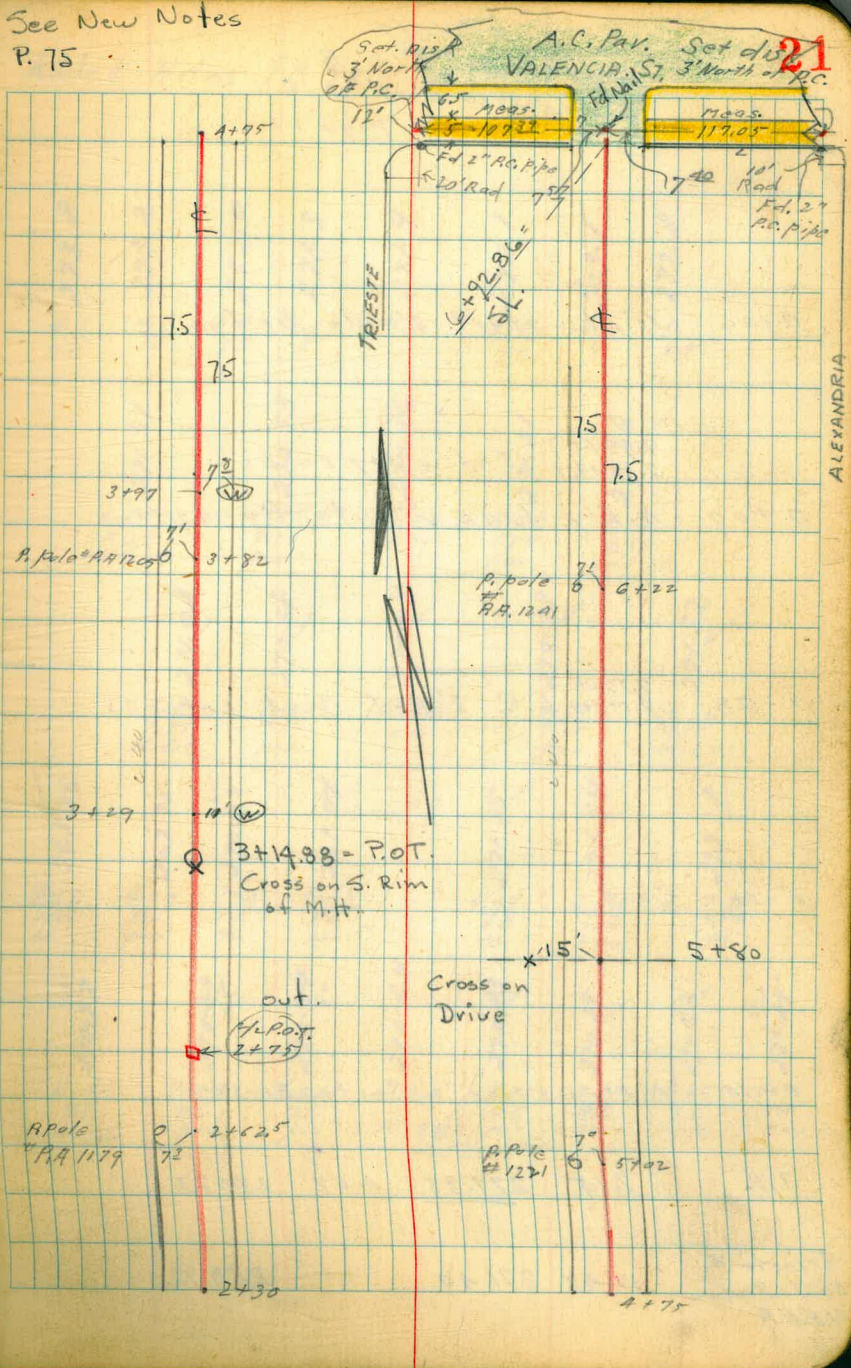 See New Notes
P. 75
21
Set. Disk
3' North
of P.C.
12'
A.C. Pav.
VALENCIA ST.
Set disk
3' North of P.C.
Fd Nail
6.5
5
Meas.
107.32
7
Meas.
117.05
Fd 2" P.C. pipe
20' Rad
7 57
7 40
10'
Rad
Fd. 2"
P.C. pipe
4+75
℄
7.5
7.5
TRIESTE
6+92.86
℄
ALEXANDRIA
7.5
7.5
3+97
W
P. pole # P.A 1205
7'
3+82
P. pole
#
AA. 1241
6+22
N
3+29
11'
W
3+14.88 = P.O.T.
Cross on S. Rim
of M.H.
15'
5+80
Cross on
Drive
out.
P.O.T.
2+75
P. pole
# P.A 1179
2+62.5
P. Pole
# 1221
5+02
2+30
4+75